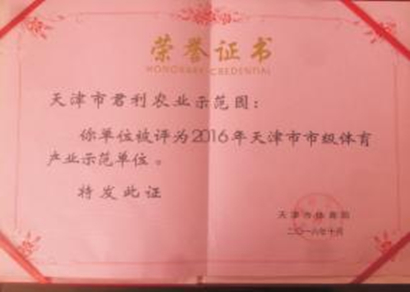 荣誉证书
HONORARY CREDENTIAL
天津市君利农业示范园：
你单位被评为2016年天津市市级体育
产业示范单位。
特发此证
天津市体育局
二〇一六年十月